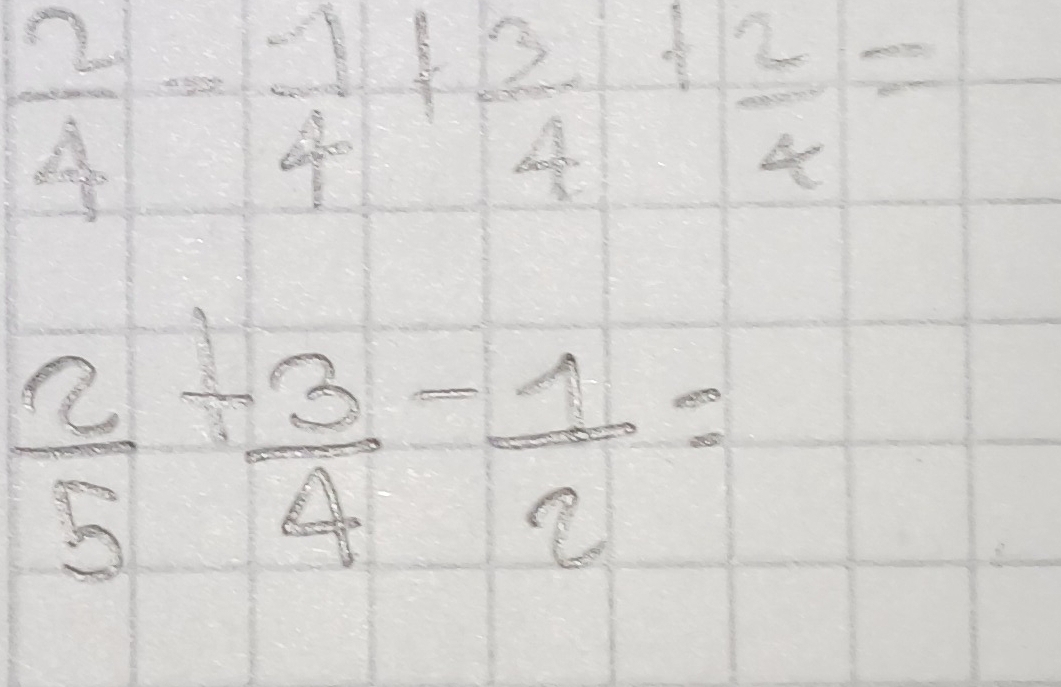 2/4 - 1/4 + 3/4 + 2/4 =
2/5 + 3/4 - 1/2 =